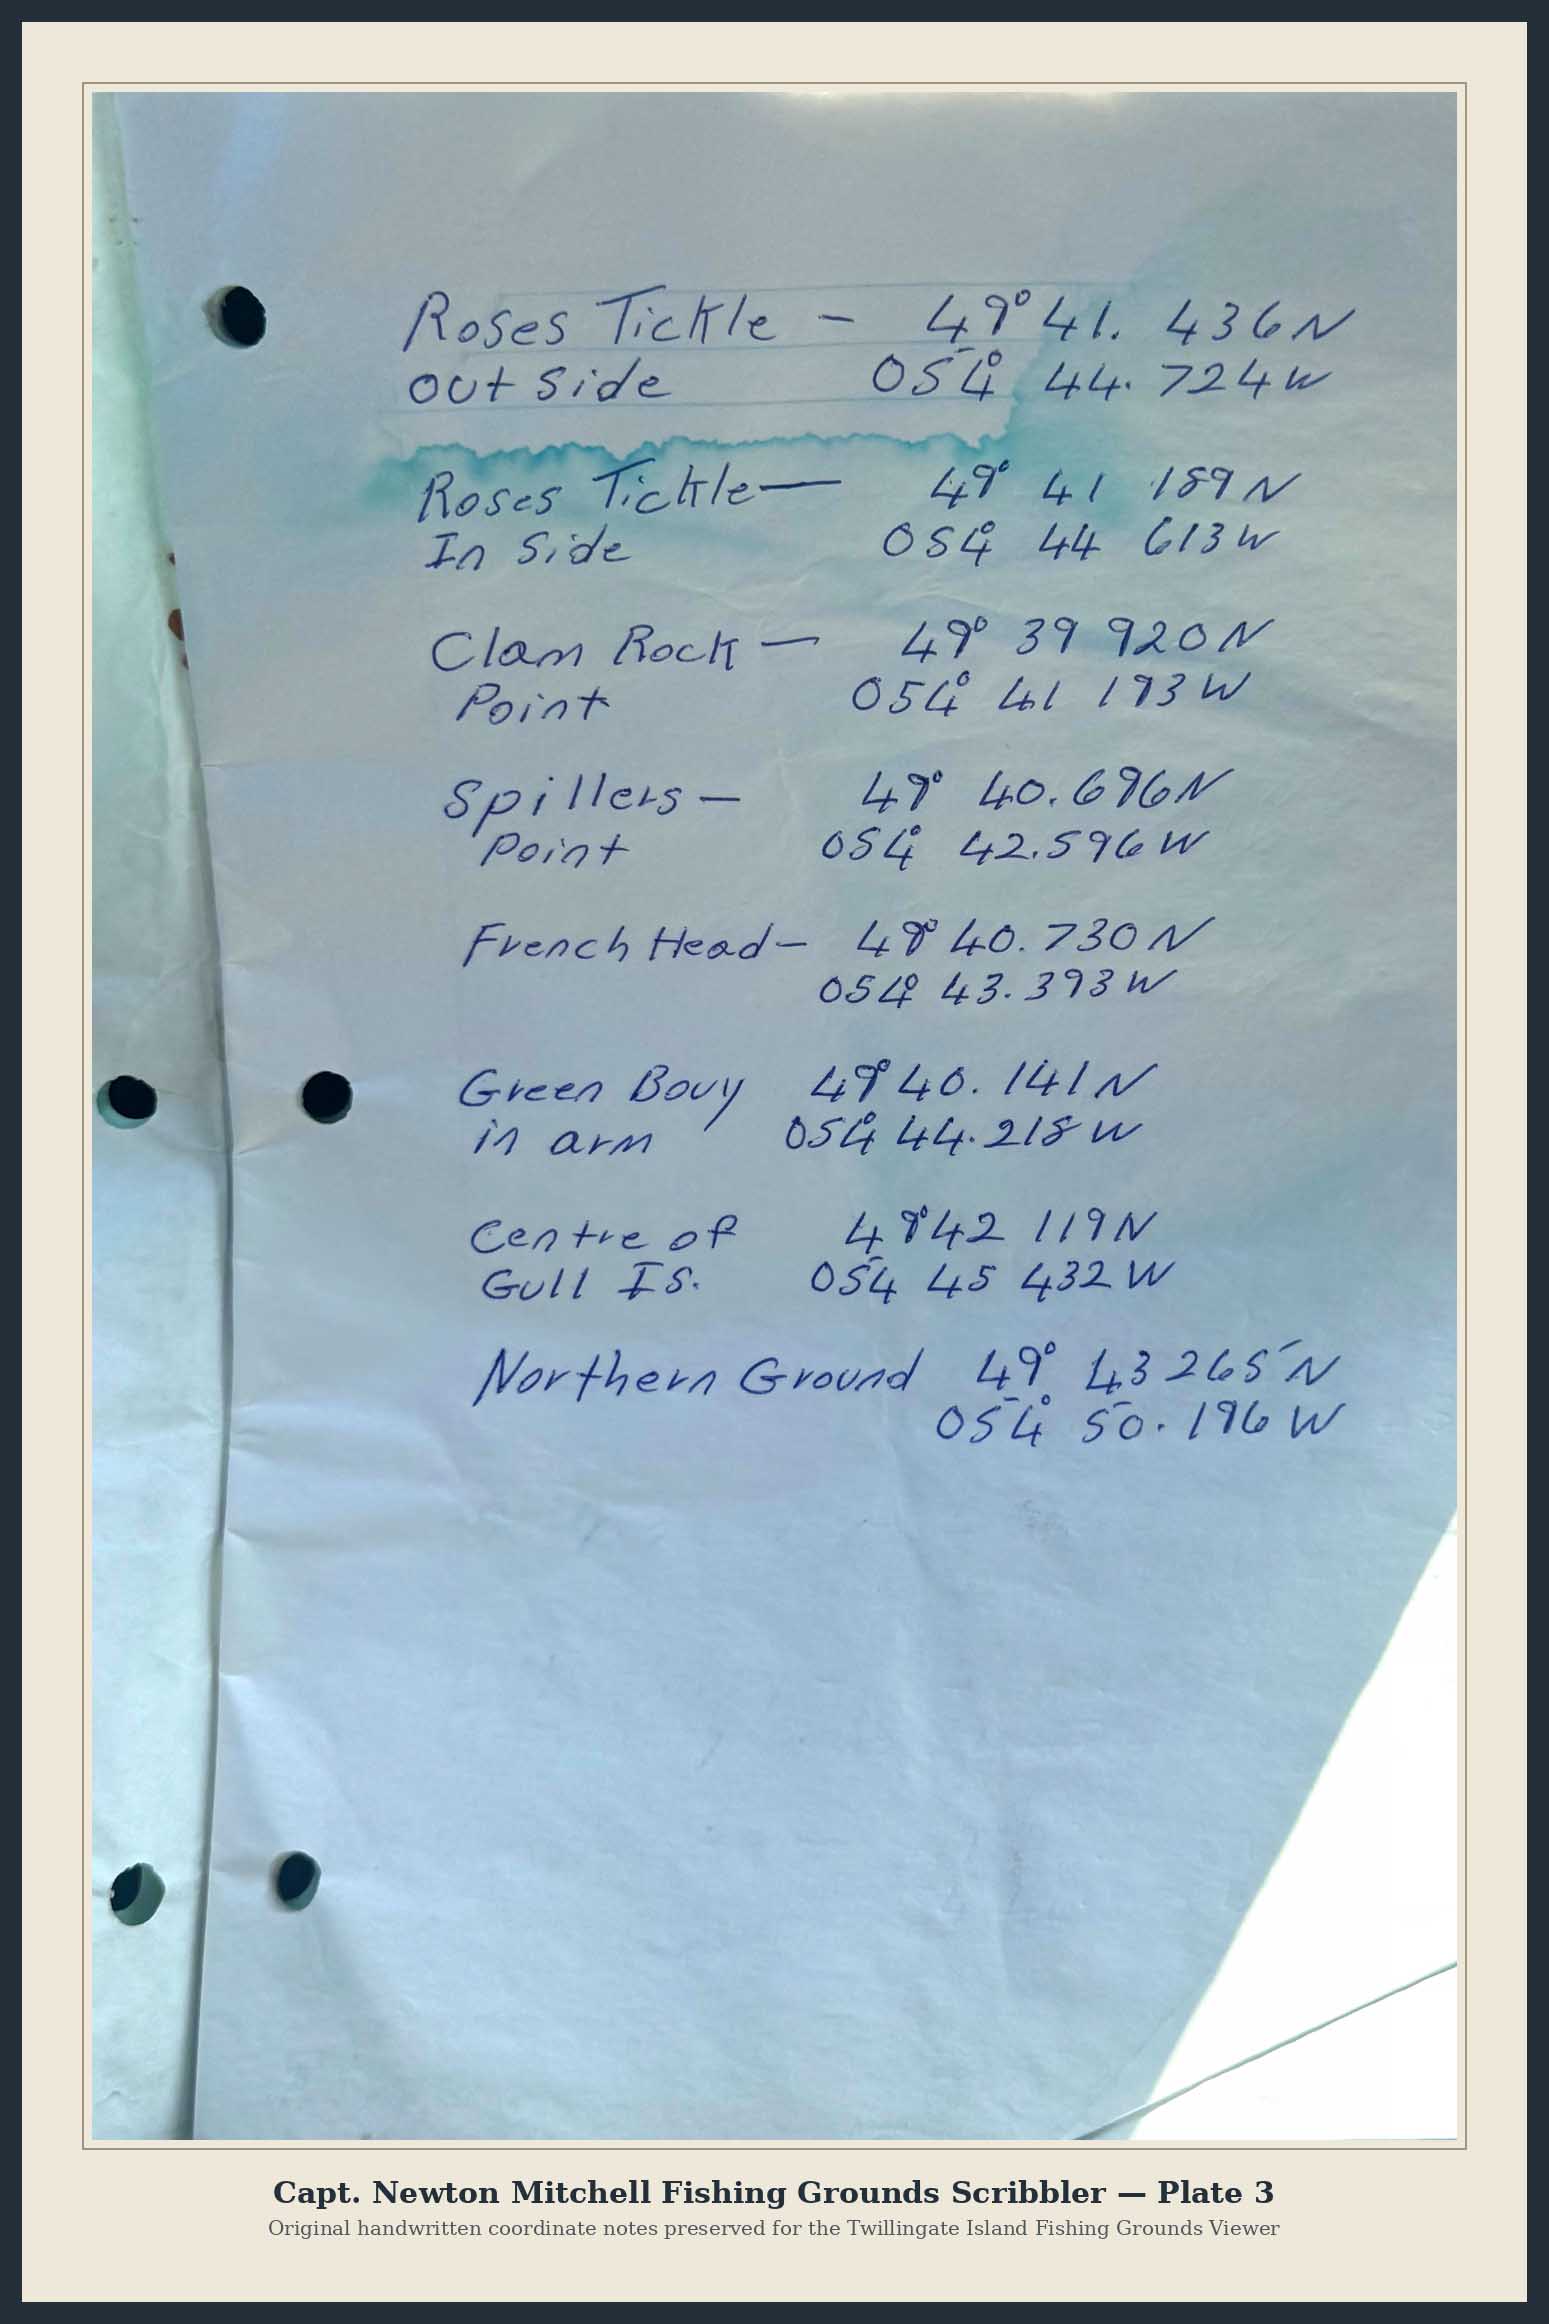 Roses Tickle – 49° 41. 436 N
out side 054° 44. 724 W
Roses Tickle — 49° 41 189 N
In Side 054° 44 613 W
Clam Rock — 49° 39 920 N
Point 054° 41 193 W
Spillers – 49° 40.696 N
Point 054° 42.596 W
French Head – 49° 40.730 N
054° 43.393 W
Green Bouy 49° 40.141 N
in arm 054° 44.218 W
Centre of 49° 42 119 N
Gull Is. 054 45 432 W
Northern Ground 49° 43 265 N
054° 50.196 W
Capt. Newton Mitchell Fishing Grounds Scribbler — Plate 3
Original handwritten coordinate notes preserved for the Twillingate Island Fishing Grounds Viewer